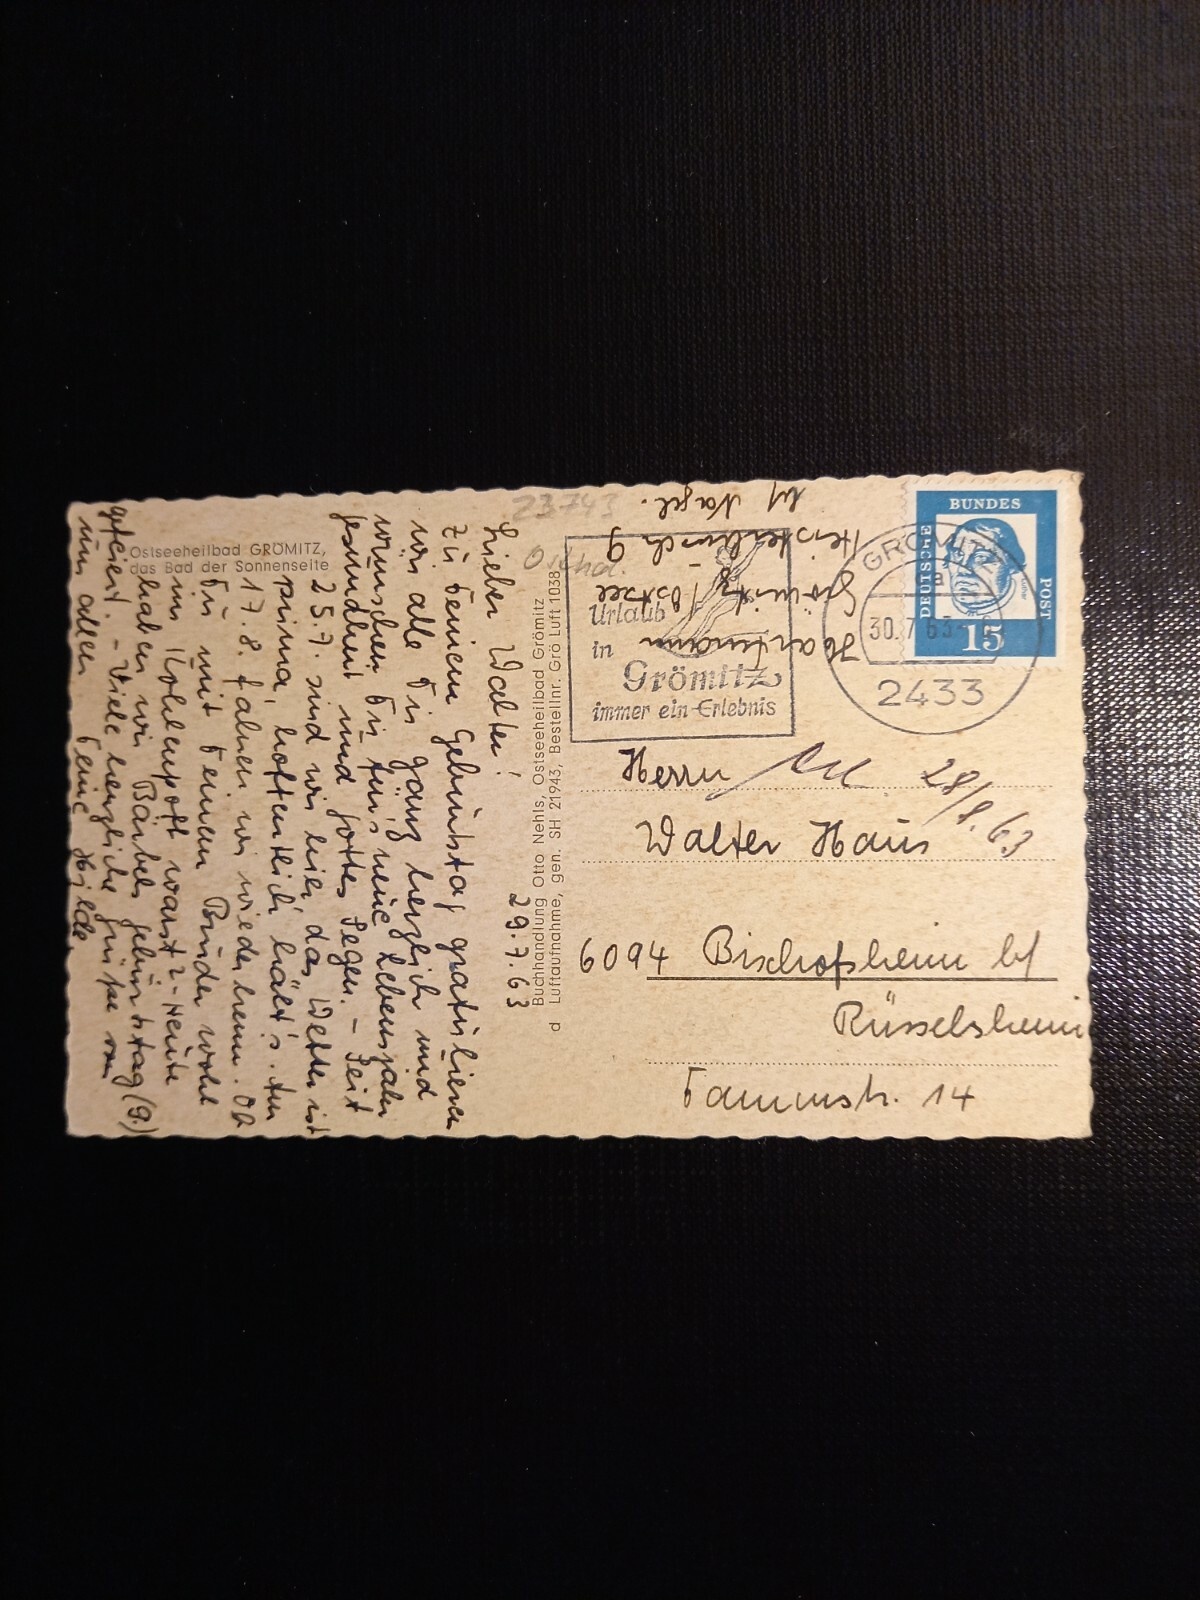 Ostseeheilbad GRÖMITZ,
das Bad der Sonnenseite
29.7.63
Lieber Walter!
Zu Deinem Geburtstag gratulieren
wir alle Dir ganz herzlich und
wünschen Dir fürs neue Lebensjahr
Gesundheit und Gottes Segen. – Seit
25.7. sind wir hier, das Wetter ist
prima, hoffentlich hält's. Am
17.8. fahren wir wieder heim. Ob
Du mit Deinem Bruder wohl
im warst? – Heute
haben wir Bärbels Geburtstag (9.)
gefeiert. – Viele herzliche Grüße von
uns allen Deine Hilde
Buchhandlung Otto Nehls, Ostseeheilbad Grömitz
d Luftaufnahme, gen. SH 21943, Bestellnr. Grö Luft 1038
23743
Hartmann
Grömitz/Ostsee
9
b/ Nagel.
Urlaub
in
Grömitz
immer ein Erlebnis
GRÖMITZ
a
30.7.63
2433
DEUTSCHE
BUNDES
POST
15
Herrn
28/8.63
Walter Haus
6094 Bischofsheim b/
Rüsselsheim
Taunusstr. 14